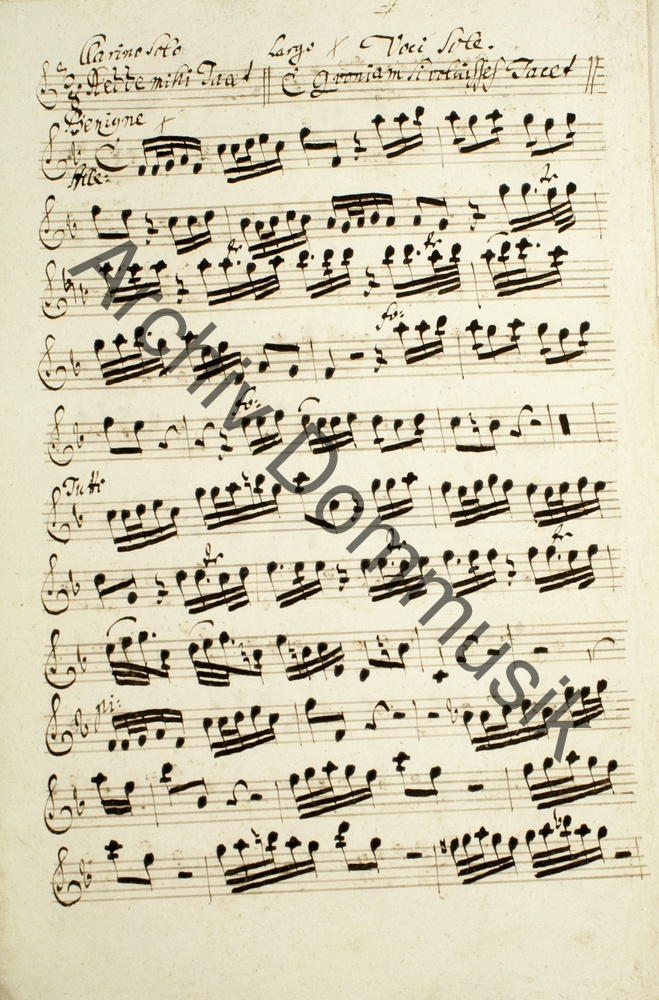 Clarino Solo Largo Voci Sole.
Redde mihi Tacet Quoniam si voluisses Tacet
Benigne
Alle:
tr
tr tr
fo:
fo:
Tutti
tr tr
pi:
Archiv Dommusik